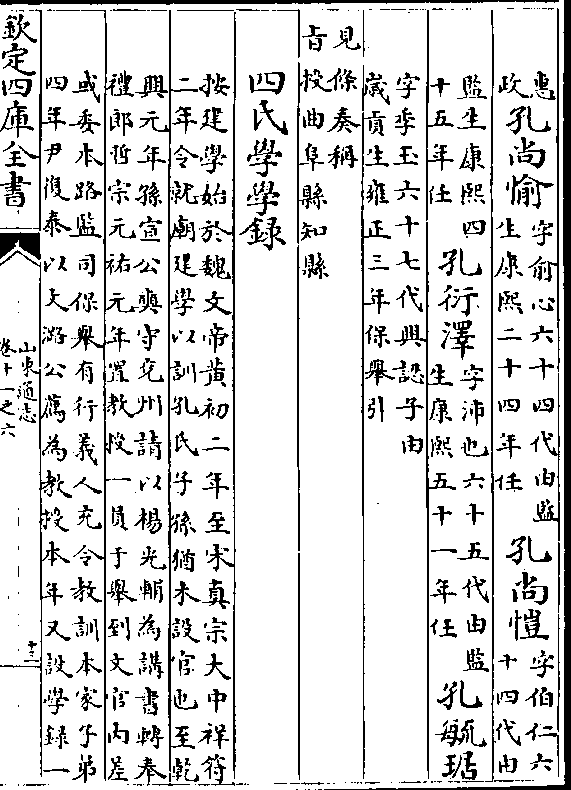 惠政 孔尚愉 字俞心六十四代由監生康熙二十四年任 孔尚愷 字伯仁六十四代由
監生康熙四十五年任 孔衍澤 字沛也六十五代由監生康熙五十一年任 孔毓琚
字季玉六十七代興認子由
歲貢生雍正三年保舉引
見條奏稱
旨授曲阜縣知縣
四氏學學録
按建學始於魏文帝黄初二年至宋真宗大中祥符
二年令就廟建學以訓孔氏子孫猶未設官也至乾
興元年孫宣公奭守兖州請以楊光輔為講書轉奉
禮郎哲宗元祐元年置教授一員于舉到文官内差
或委本路監司保舉有行義人充令教訓本家子弟
四年尹復泰以文潞公薦為教授本年又設學録一
欽定四庫全書
山東通志
卷十一之六
十三